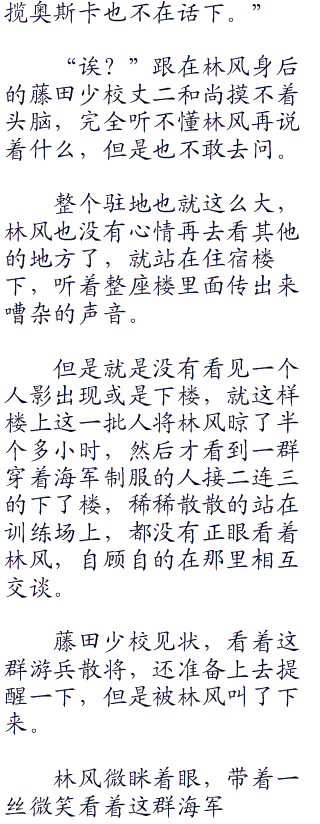 揽奥斯卡也不在话下。”
“诶？”跟在林风身后
的藤田少校丈二和尚摸不着
头脑，完全听不懂林风再说
着什么，但是也不敢去问。
整个驻地也就这么大，
林风也没有心情再去看其他
的地方了，就站在住宿楼
下，听着整座楼里面传出来
嘈杂的声音。
但是就是没有看见一个
人影出现或是下楼，就这样
楼上这一批人将林风晾了半
个多小时，然后才看到一群
穿着海军制服的人接二连三
的下了楼，稀稀散散的站在
训练场上，都没有正眼看着
林风，自顾自的在那里相互
交谈。
藤田少校见状，看着这
群游兵散将，还准备上去提
醒一下，但是被林风叫了下
来。
林风微眯着眼，带着一
丝微笑看着这群海军